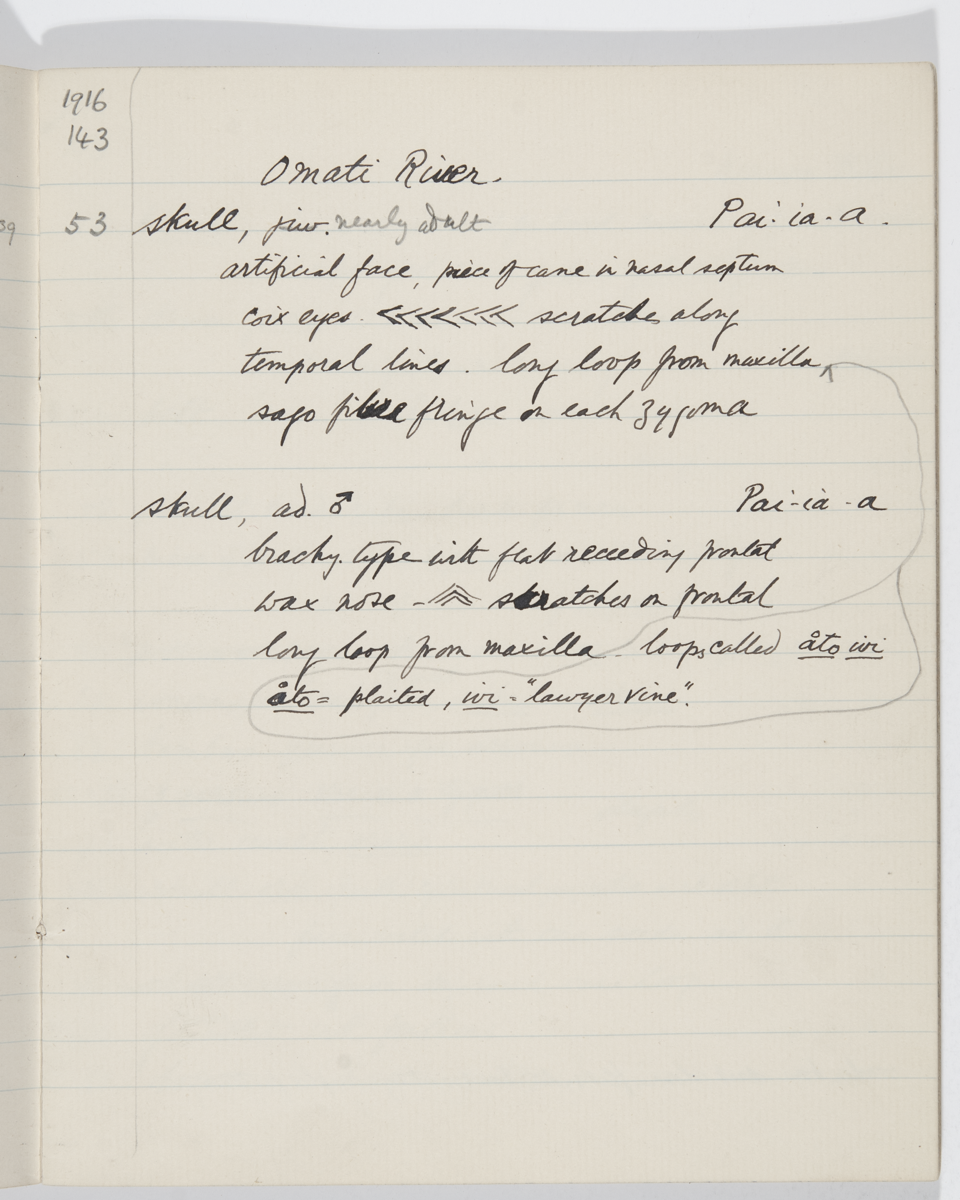 1916
143
Omati River.
39
53 skull, juv. nearly adult Pai-ia-a.
artificial face, piece of cane in nasal septum
coix eyes. <<<<<<< scratches along
temporal lines. long loop from maxilla
sago fibre fringe on each zygoma
skull, ad. ♂ Pai-ia-a
brachy. type with flat receeding frontal
wax nose - scratches on frontal
long loop from maxilla. loops called åto iwi
åto = plaited, iwi = "lawyer vine".